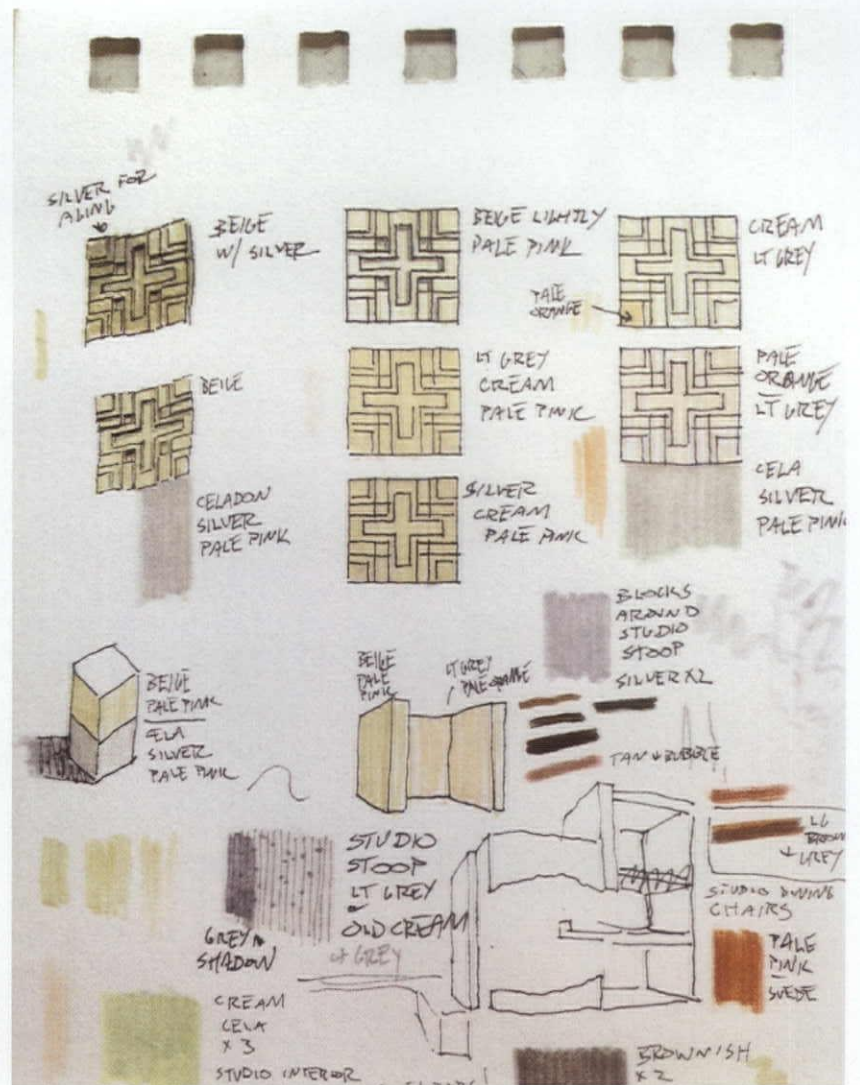 SILVER FOR
AGING
BEIGE
W/ SILVER
BEIGE LIGHTLY
PALE PINK
CREAM
LT GREY
PALE
ORANGE
BEIGE
LT GREY
CREAM
PALE PINK
PALE
ORANGE
LT GREY
CELADON
SILVER
PALE PINK
SILVER
CREAM
PALE PINK
CELA
SILVER
PALE PINK
BLOCKS
AROUND
STUDIO
STOOP
SILVER X2
BEIGE
PALE PINK
CELA
SILVER
PALE PINK
BEIGE
PALE
PINK
LT GREY
PALE ORANGE
TAN
STUDIO
STOOP
LT GREY
OLD CREAM
LT GREY
GREY
SHADOW
BROWN
GREY
STUDIO DINING
CHAIRS
PALE
PINK
SUEDE
CREAM
CELA
X 3
STUDIO INTERIOR
BROWNISH
X 2